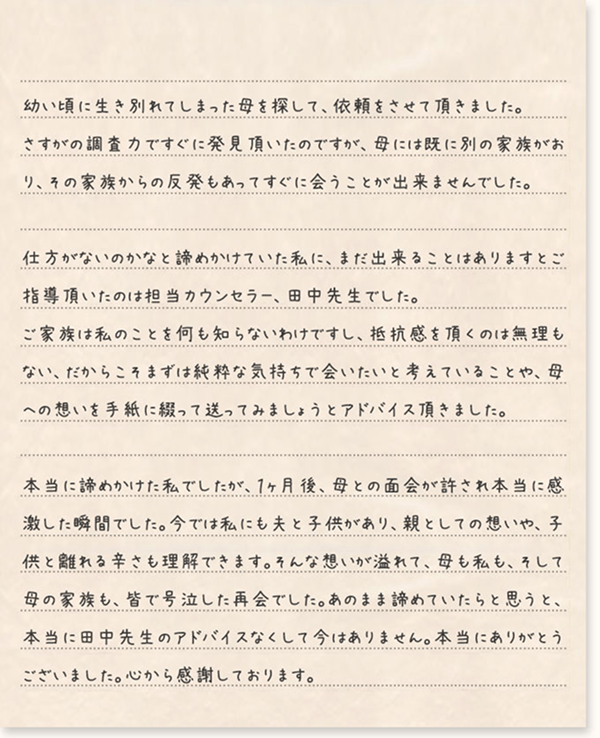 幼い頃に生き別れてしまった母を探して、依頼をさせて頂きました。
さすがの調査力ですぐに発見頂いたのですが、母には既に別の家族がお
り、その家族からの反発もあってすぐに会うことが出来ませんでした。
仕方がないのかなと諦めかけていた私に、まだ出来ることはありますとご
指導頂いたのは担当カウンセラー、田中先生でした。
ご家族は私のことを何も知らないわけですし、抵抗感を頂くのは無理も
ない、だからこそまずは純粋な気持ちで会いたいと考えていることや、母
への想いを手紙に綴って送ってみましょうとアドバイス頂きました。
本当に諦めかけた私でしたが、1ヶ月後、母との面会が許され本当に感
激した瞬間でした。今では私にも夫と子供があり、親としての想いや、子
供と離れる辛さも理解できます。そんな想いが溢れて、母も私も、そして
母の家族も、皆で号泣した再会でした。あのまま諦めていたらと思うと、
本当に田中先生のアドバイスなくして今はありません。本当にありがとう
ございました。心から感謝しております。